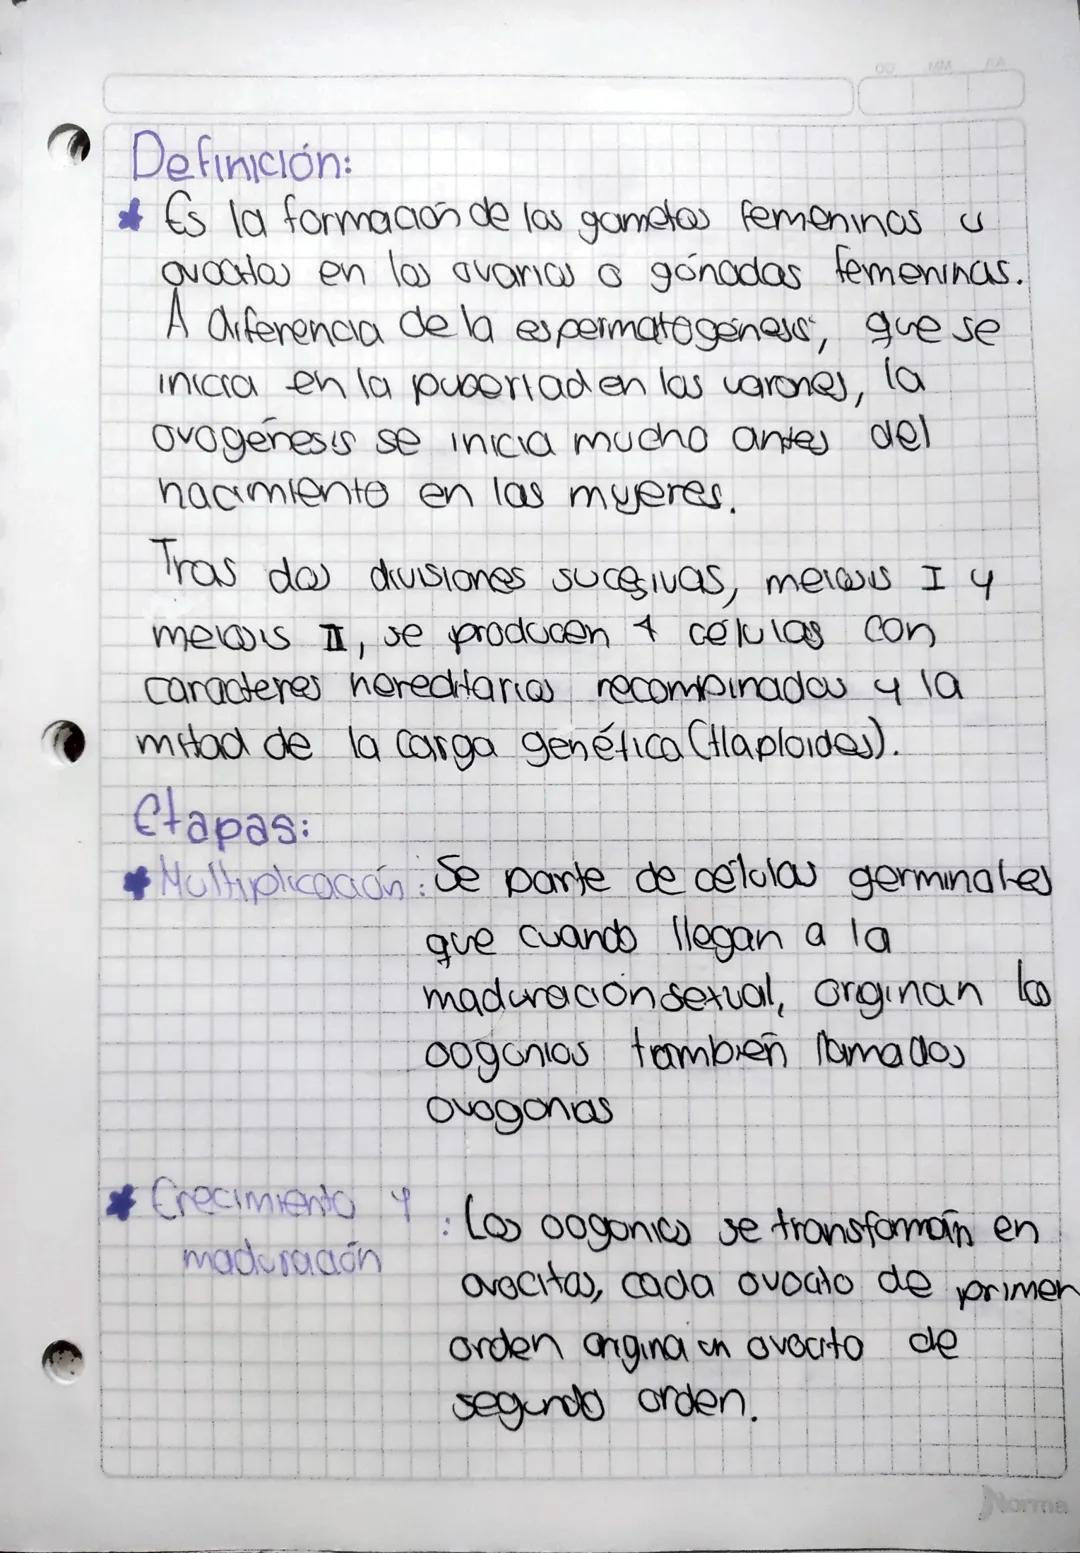 DD MM AA
Definición:
* Es la formación de los gametos femeninos u
ovocitos en los ovarios o gónadas femeninas.
A diferencia de la espermatogénesis, que se
inicia en la pubertad en los varones, la
ovogénesis se inicia mucho antes del
nacimiento en las mujeres.
Tras dos divisiones sucesivas, meiosis I y
meiosis II, se producen 4 células con
caracteres hereditarios recombinados y la
mitad de la carga genética (Haploides).
Etapas:
* Multiplicación: Se parte de células germinales
que cuando llegan a la
maduración sexual, originan los
oogonios también llamados
ovogonias
* Crecimiento y
maduración
: Los oogonios se transforman en
ovocitos, cada ovocito de primer
orden origina un ovocito de
segundo orden.
Norma